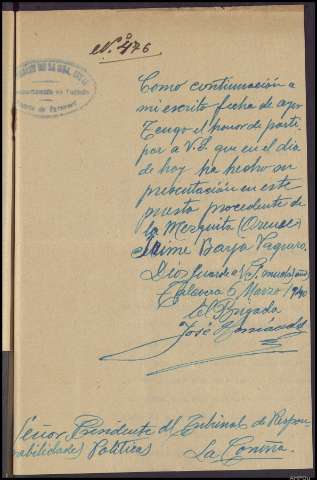 Nº 476
Como continuación a
mi escrito fecha de ayer
Tengo el honor de parti-
par a V.S. que en el día
de hoy ha hecho su
presentación en este
puesto procedente de
la Mezquita (Orense)
Jaime Barja Vaquero.
Dios guarde a V.S. muchos años
6 Marzo 1940
El Brigada
José Hernández
Señor Presidente del Tribunal de Respon
sabilidades Políticas
La Coruña.